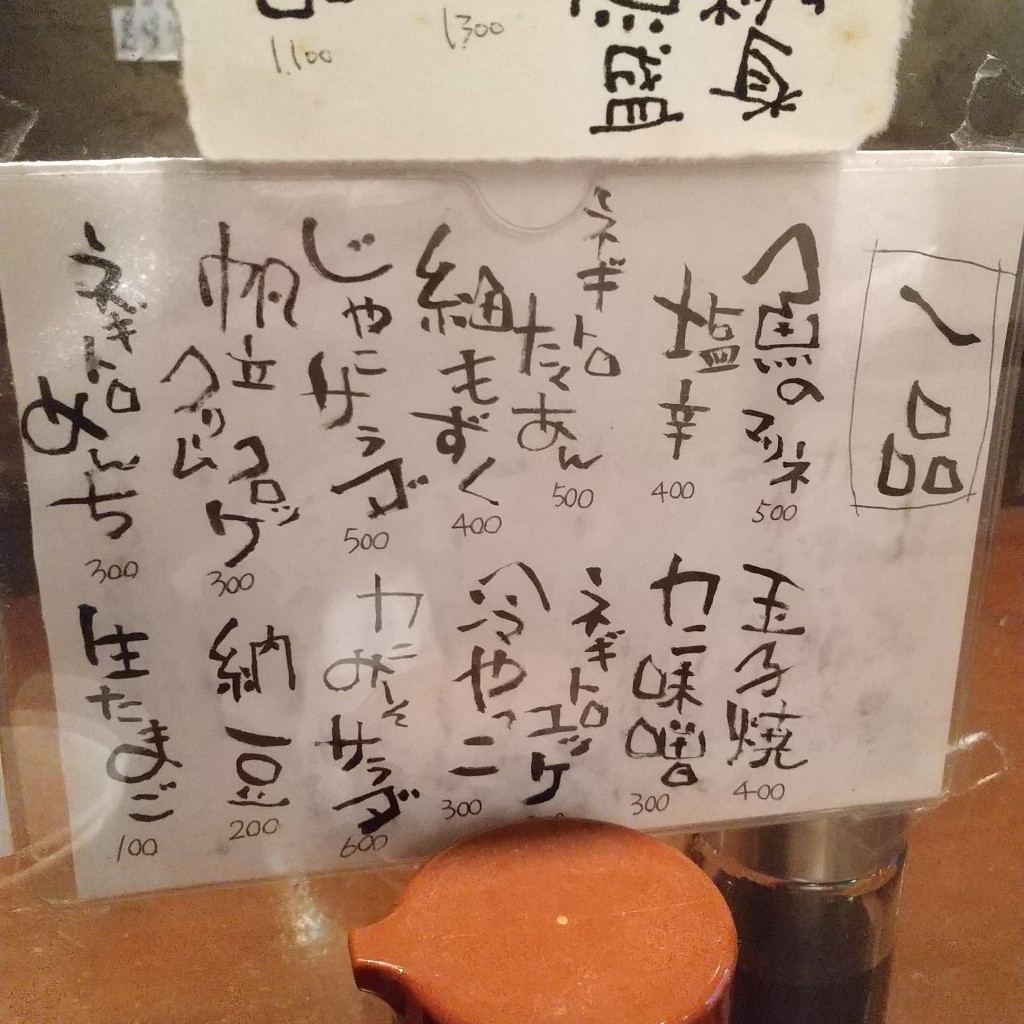 1,100
1300
盛
一品
魚のマリネ 500
塩辛 400
ネギトロたくあん 500
細もずく 400
じゃこサラダ 500
帆立クリムコロッケ 300
ネギトロめんち 300
玉子焼 400
カニ味噌 300
ネギトロユッケ
冷やっこ 300
カニみそサラダ 600
納豆 200
生たまご 100